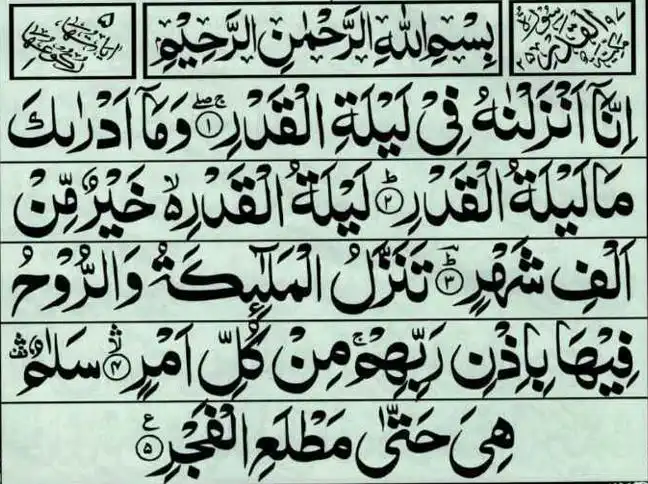 سورة القدر مكية ٩٧ ٢٥
بِسْمِ اللّٰهِ الرَّحْمٰنِ الرَّحِيْمِ
اٰیاتها ۵ رکوعها ۱
اِنَّاۤ اَنْزَلْنٰهُ فِیْ لَیْلَةِ الْقَدْرِ ۚۖ ﴿۱﴾ وَمَاۤ اَدْرٰىكَ
مَا لَیْلَةُ الْقَدْرِ ؕ﴿۲﴾ لَیْلَةُ الْقَدْرِ ۙ۬ خَیْرٌ مِّنْ
اَلْفِ شَهْرٍ ؕؔ﴿۳﴾ تَنَزَّلُ الْمَلٰٓئِكَةُ وَالرُّوْحُ
فِیْهَا بِاِذْنِ رَبِّهِمْ ۚ مِنْ كُلِّ اَمْرٍ ﴿۴﴾ۙۛ سَلٰمٌ ۛ۫
هِیَ حَتّٰی مَطْلَعِ الْفَجْرِ ﴿۵﴾ ع